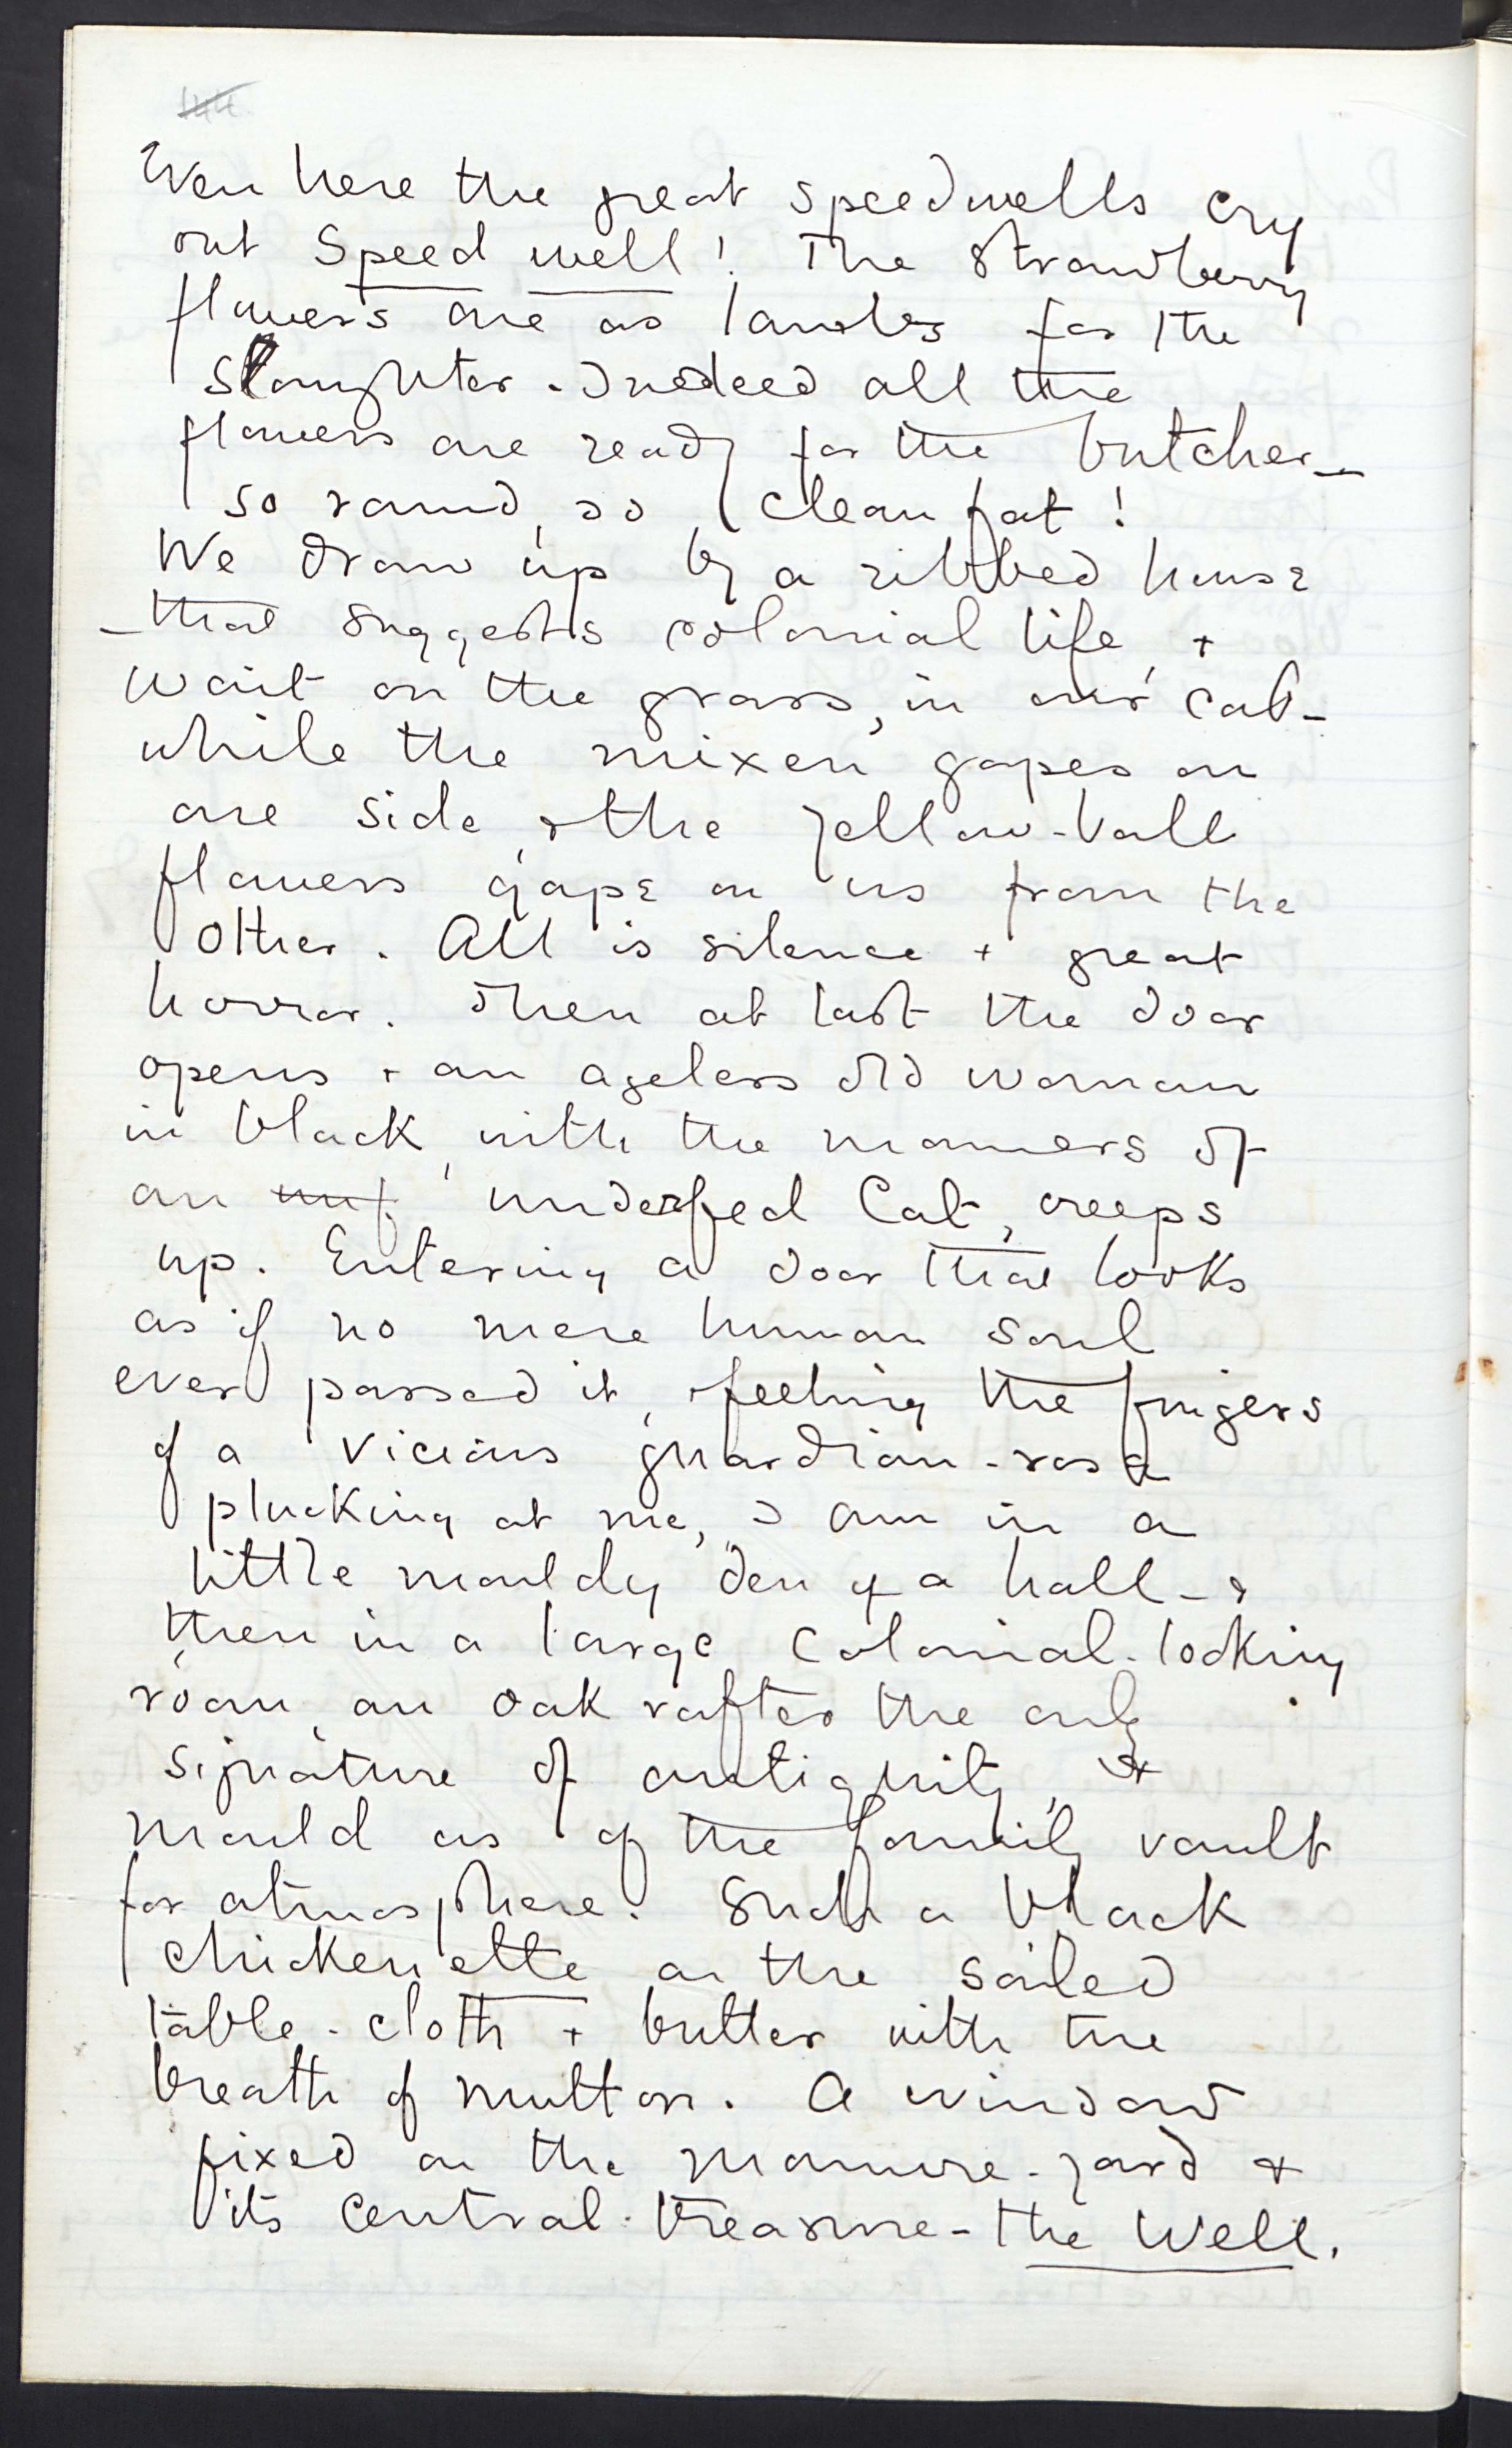 144
Even here the great speedwells cry
out Speed well! The strawberry
flowers are as lambs for the
slaughter. Indeed all the
flowers are ready for the butcher –
so round, so clean fat!
We draw up by a ribbed house
– that suggests colonial life, +
wait on the grass, in our cab –
while the mixen gapes on
one side, & the yellow-ball
flowers gape on us from the
other. All is silence + great
horror. Then at last the door
opens + an ageless old woman
in black, with the manners of
an unf underfed Cat, creeps
up. Entering a door that looks
as if no mere human soul
ever passed it, & feeling the fingers
of a vicious guardian-rose
plucking at me, I am in a
little mouldy den of a hall – &
then in a large Colonial-looking
room, an oak rafter the only
signature of antiquity, &
mould as of the family vault
for atmosphere. Such a black
chickenette on the soiled
table-cloth + butter with the
breath of mutton. A window
fixed on the manure-yard &
its central treasure – the Well.